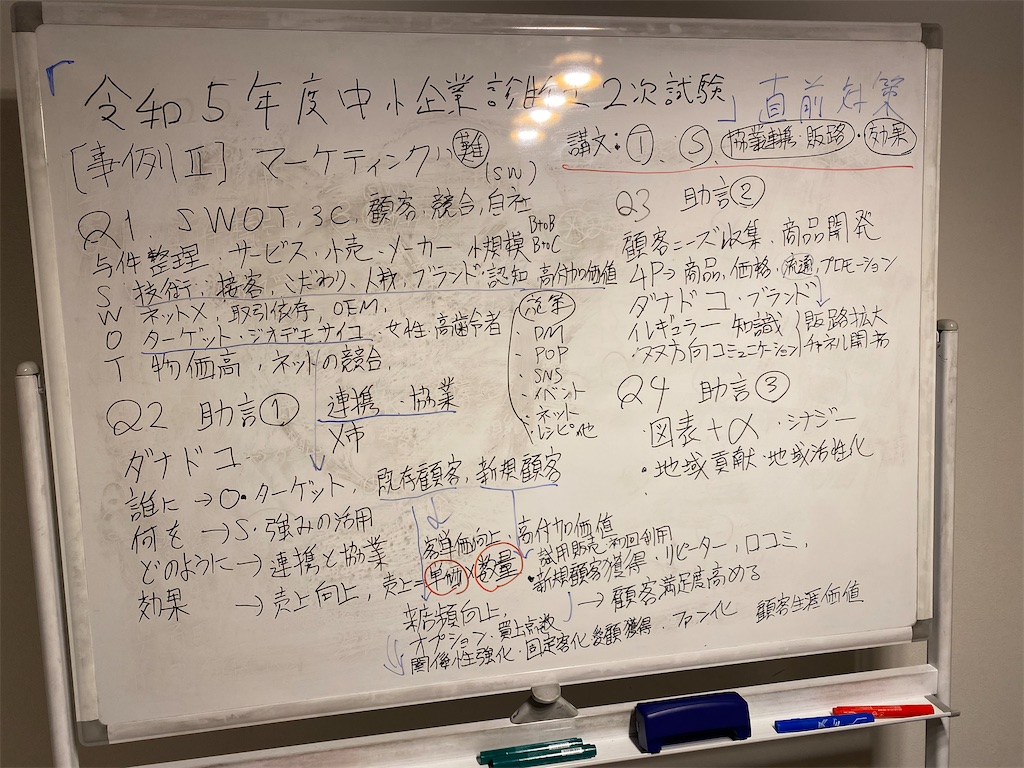 「令和5年度中小企業診断士2次試験」直前対策
[事例Ⅱ] マーケティング 難
(sw)
講文: ①、S、協業連携・販路・効果
Q1. SWOT, 3C, 顧客, 競合, 自社
与件整理、サービス・小売・メーカー・小規模 BtoB BtoC
S 技術・接客・こだわり、人材、ブランド・認知 高付加価値
W ネット×、取引依存、OEM、
O ターゲット・ジオデモサイコ・女性・高齢者
T 物価高・ネットの競合、
・DM
・POP
・SNS
・イベント
・ネット
・レシピ他
Q2 助言① 連携・協業
X市
ダナドコ
誰に→O・ターゲット、既存顧客、新規顧客
何を→S・強みの活用
どのように→連携と協業
効果→売上向上、売上=単価×数量
客単価向上、高付加価値
・試用販売・初回利用
・新規顧客獲得・リピーター、口コミ、
来店頻向上、
→顧客満足度高める
オプション、買上点数
関係性強化・固定客化 獲得・ファン化 顧客生涯価値
Q3 助言②
顧客ニーズ収集、商品開発
4P→商品、価格、流通、プロモーション
ダナドコ・ブランド
イレギュラー 知識 販路拡大
・双方向コミュニケーション チャネル開拓
Q4 助言③
・図表+α・シナジー
・地域貢献・地域活性化